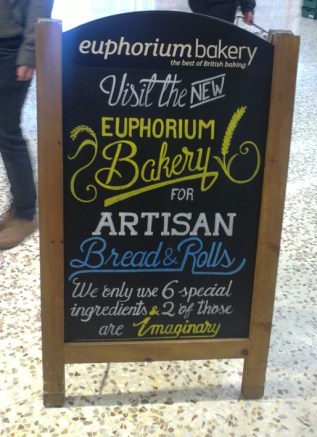 euphorium bakery
the best of British baking
Visit the NEW
EUPHORIUM
Bakery
FOR
ARTISAN
Bread & Rolls
We only use 6 special
ingredients & 2 of those
are imaginary